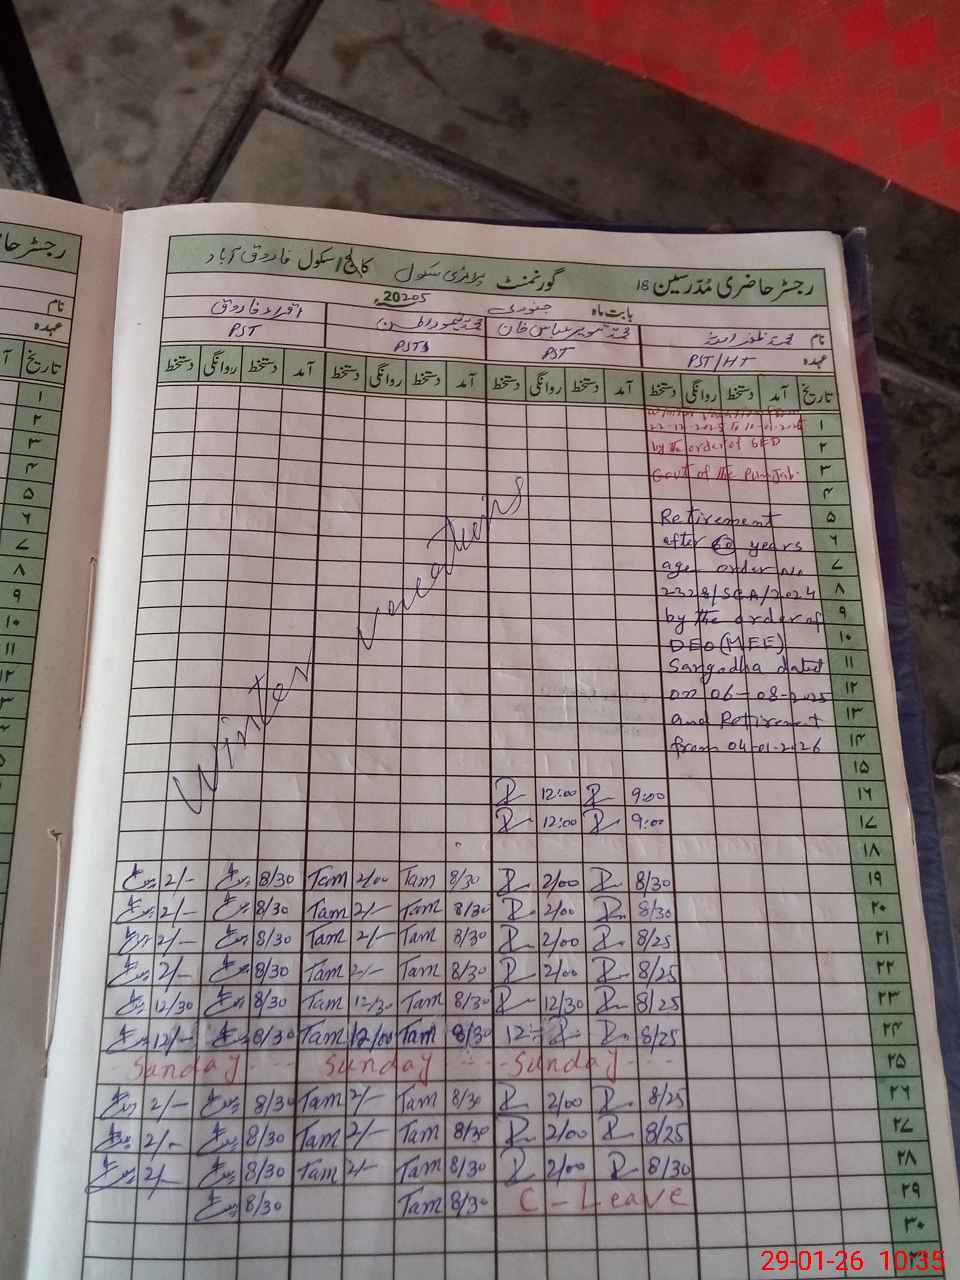 رجسٹر حاضری مُدرّسین 18 گورنمنٹ پرائمری سکول کالج اسکول فاروق آباد
بابت ماہ جنوری 20205ء
نام
اقراء فاروق
عہدہ PST/HT PST PST PST
تاریخ آمد دستخط روانگی دستخط آمد دستخط روانگی دستخط آمد دستخط روانگی دستخط آمد دستخط روانگی دستخط
۱
۲ by the order of SED
۳ Govt of the Punjab.
۴
۵ Retirement
۶ after 60 years
۷ age order No
۸ 2328/SGA/2024
۹ by the order of
۱۰ DEO (MEE)
۱۱ Sargodha dated
۱۲ on 06-08-2025
۱۳ and Retirement
۱۴ from 04-01-2026
Winter vacations
۱۵
۱۶ 9:00 12:00
۱۷ 9:00 12:00
۱۸
۱۹ 8/30 2/00 8/30 Tam 2/00 Tam 8/30 2/-
۲۰ 8/30 2/00 8/30 Tam 2/- Tam 8/30 2/-
۲۱ 8/25 2/00 8/30 Tam 2/- Tam 8/30 2/-
۲۲ 8/25 2/00 8/30 Tam 2/- Tam 8/30 2/-
۲۳ 8/25 12/30 8/30 Tam 12/30 Tam 8/30 12/30
۲۴ 8/25 12 8/30 Tam 12/00 Tam 8/30 12/-
۲۵ Sunday Sunday Sunday
۲۶ 8/25 2/00 8/30 Tam 2/- Tam 8/30 2/-
۲۷ 8/25 2/00 8/30 Tam 2/- Tam 8/30 2/-
۲۸ 8/30 2/00 8/30 Tam 2/- Tam 8/30 2/-
۲۹ C-Leave 8/30 Tam 8/30
۳۰
رجسٹر حا
نام
عہدہ
تاریخ
۱
۲
۳
۴
۵
۶
۷
۸
۹
۱۰
۱۱
29-01-26 10:35